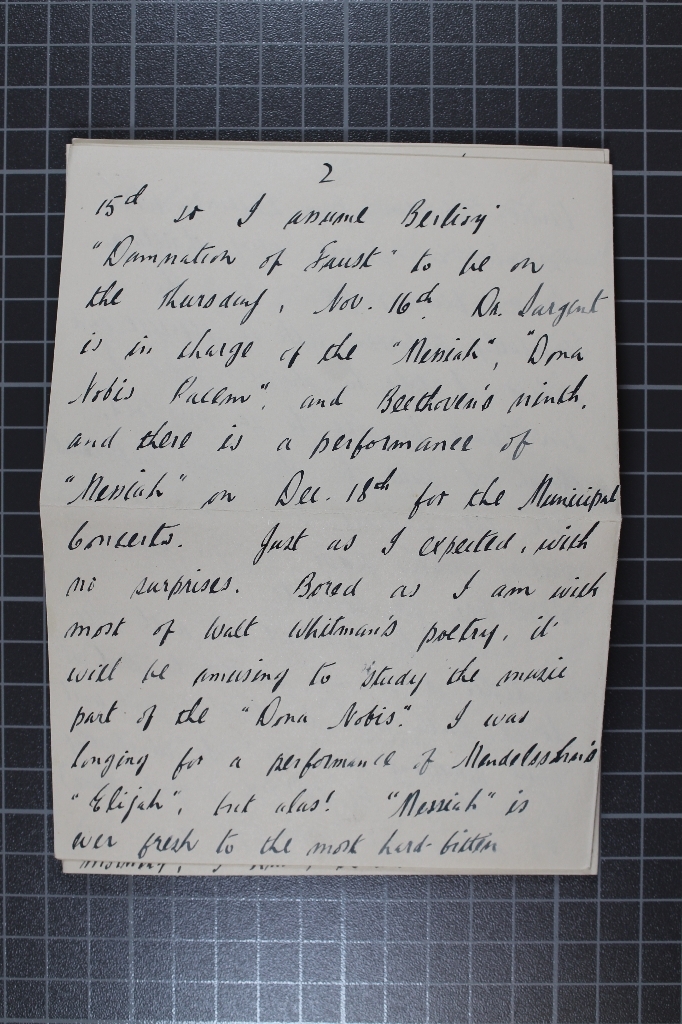 2
15th so I assume Berlioz'
"Damnation of Faust" to be on
the Thursday, Nov. 16th. Dr. Sargent
is in charge of the "Messiah", "Dona
Nobis Pacem", and Beethoven's ninth,
and there is a performance of
"Messiah" on Dec. 18th for the Municipal
Concerts. Just as I expected, with
no surprises. Bored as I am with
most of Walt Whitman's poetry, it
will be amusing to study the music
part of the "Dona Nobis". I was
longing for a performance of Mendelssohn's
"Elijah", but alas! "Messiah" is
ever fresh to the most hard-bitten